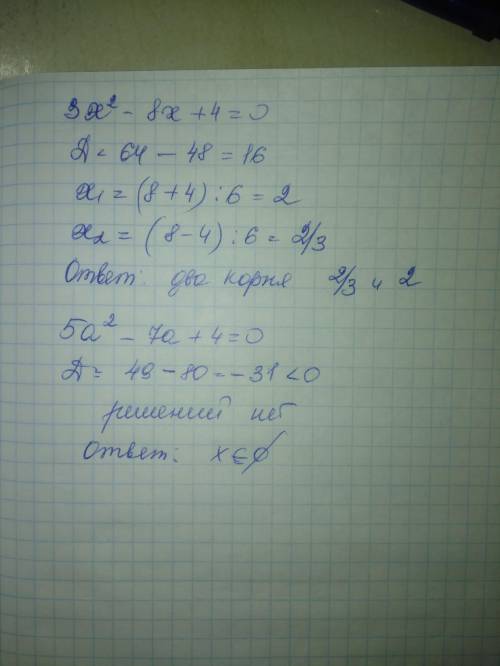 3x² - 8x + 4 = 0
D = 64 - 48 = 16
x₁ = (8 + 4) : 6 = 2
x₂ = (8 - 4) : 6 = 2/3
Ответ: два корня 2/3 и 2
5a² - 7a + 4 = 0
D = 49 - 80 = -31 < 0
решений нет
Ответ: x ∈ ∅